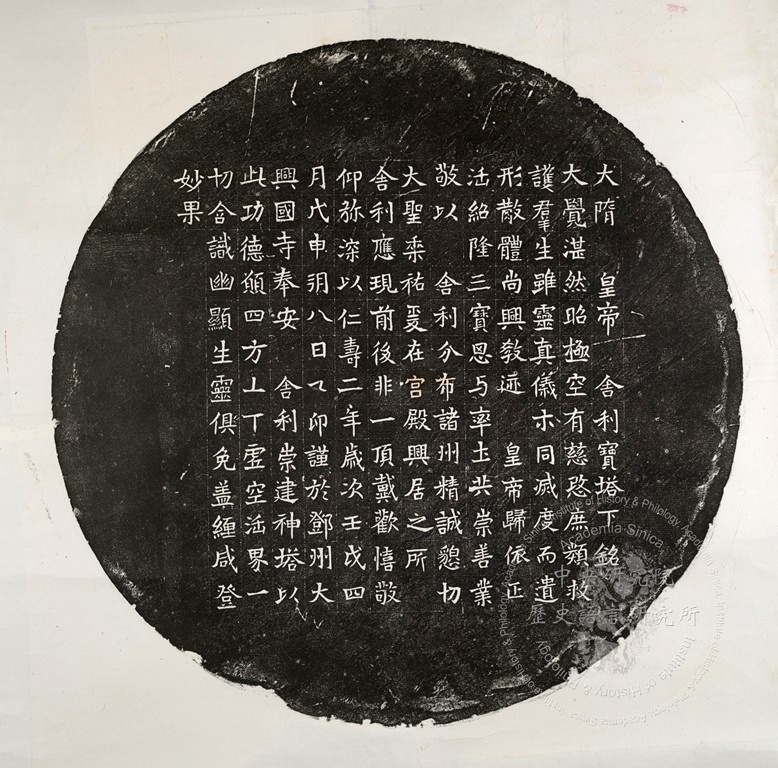 大隋 皇帝 舍利寶塔下銘
大覺湛然昭極空有慈愍庶類救
護羣生雖靈真儀示同滅度而遺
形散體尚興教迹 皇帝歸依正
法紹隆三寶思与率土共崇善業
敬以 舍利分布諸州精誠懇切
大聖垂祐爰在宮殿興居之所
舍利應現前後非一頂戴歡憘敬
仰弥深以仁壽二年歲次壬戌四
月戊申朔八日乙卯謹於鄧州大
興國寺奉安 舍利崇建神塔以
此功德願四方上下虛空法界一
切含識幽顯生靈俱免蓋纏咸登
妙果
中央研究院
歷史語言研究所
Institute of History & Philology, Academia Sinica